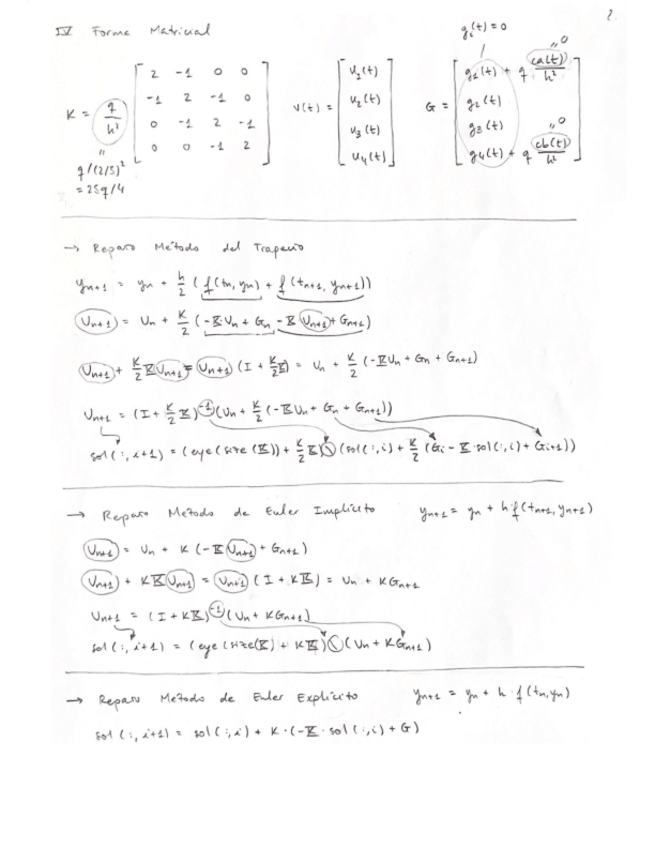 2.
IV Forma Matricial
g_i(t) = 0
K = q/h² [ 2 -1 0 0 ; -1 2 -1 0 ; 0 -1 2 -1 ; 0 0 -1 2 ]
U(t) = [ u_1(t) ; u_2(t) ; u_3(t) ; u_4(t) ]
G = [ g_1(t) + q ca(t)/h² ; g_2(t) ; g_3(t) ; g_4(t) + q cb(t)/h² ]
" 0
" 0
"
q/(2/5)²
= 25q/4
→ Repaso Método del Trapecio
y_{n+1} = y_n + h/2 (f(t_n, y_n) + f(t_{n+1}, y_{n+1}))
U_{n+1} = U_n + K/2 (-K U_n + G_n - K U_{n+1} + G_{n+1})
U_{n+1} + K/2 K U_{n+1} = U_{n+1} (I + K/2 K) = U_n + K/2 (-K U_n + G_n + G_{n+1})
U_{n+1} = (I + K/2 K)^{-1} (U_n + K/2 (-K U_n + G_n + G_{n+1}))
sol(:, i+1) = (eye(size(K)) + K/2 K) \ (sol(:,i) + K/2 (G_i - K·sol(:,i) + G_{i+1}))
→ Repaso Método de Euler Implícito y_{n+1} = y_n + h f(t_{n+1}, y_{n+1})
U_{n+1} = U_n + K (-K U_{n+1} + G_{n+1})
U_{n+1} + K K U_{n+1} = U_{n+1} (I + K K) = U_n + K G_{n+1}
U_{n+1} = (I + K K)^{-1} (U_n + K G_{n+1})
sol(:, i+1) = (eye(size(K) + K K) \ (U_n + K G_{n+1})
→ Repaso Método de Euler Explícito y_{n+1} = y_n + h · f(t_n, y_n)
sol(:, i+1) = sol(:, i) + K · (-K · sol(:,i) + G)